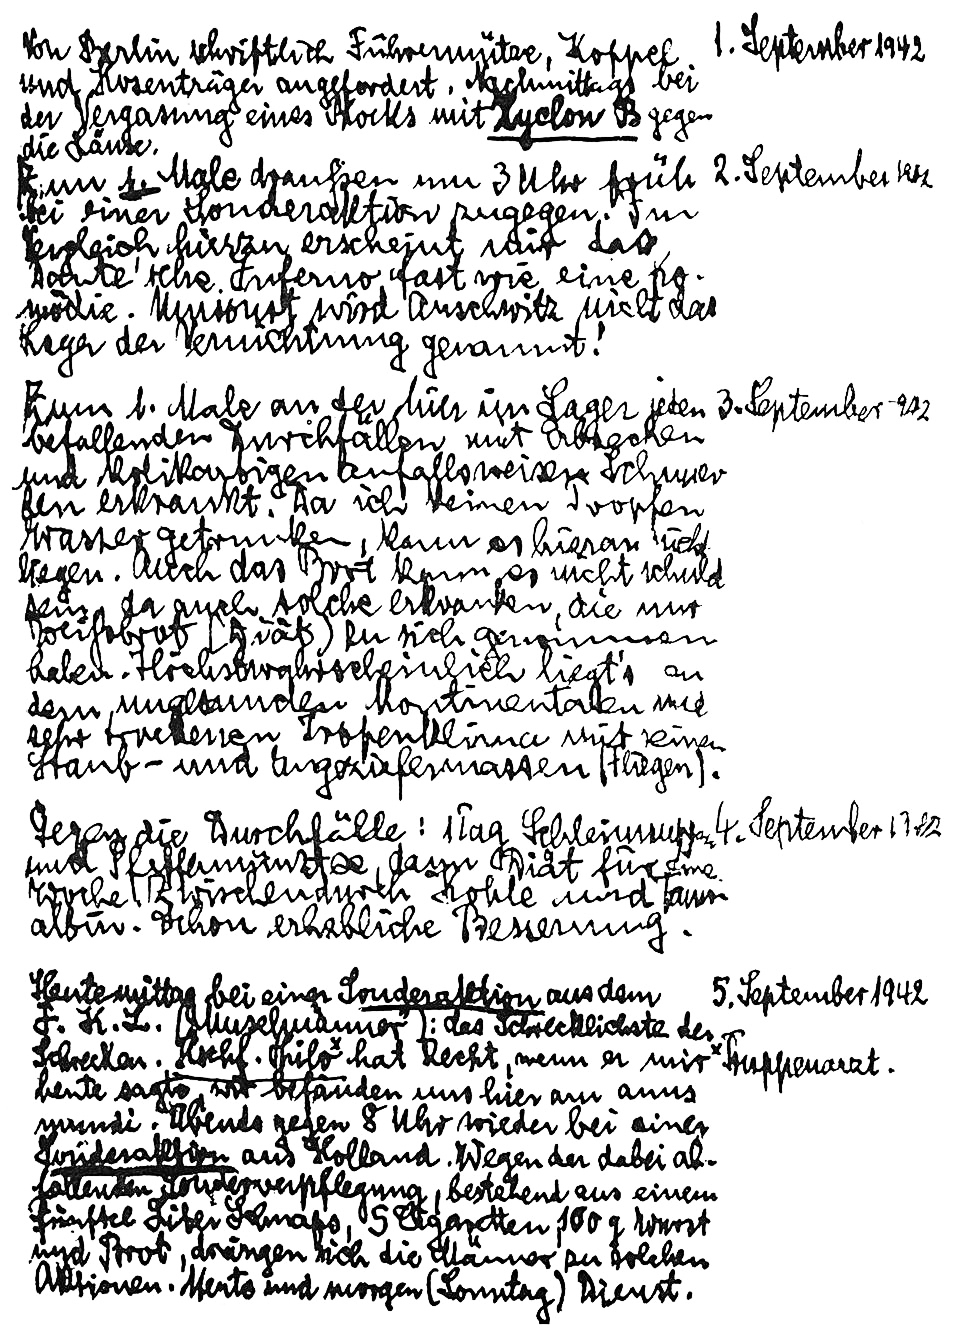 Von Berlin schriftlich Führermütze, Koppel 1. September 1942
und Hosenträger angefordert. Nachmittags bei
der Vergasung eines Blocks mit Zyclon B gegen
die Läuse.
Zum 1. Male draußen um 3 Uhr früh 2. September 1942
bei einer Sonderaktion zugegen. Im
Vergleich hierzu erscheint mir das
Dante'sche Inferno fast wie eine Ko-
mödie. Umsonst wird Auschwitz nicht das
Lager der Vernichtung genannt!
Zum 1. Male an den hier im Lager jeden 3. September 1942
befallenden Durchfällen mit Erbrechen
und kolikartigen anfallsweisen Schmer
zen erkrankt. Da ich keinen Tropfen
Wasser getrunken, kann es hieran nicht
liegen. Auch das Brot kann es nicht schuld
sein, da auch solche erkranken, die nur
Weißbrot (Diät) zu sich genommen
haben. Höchstwahrscheinlich liegt's an
dem ungesunden kontinentalen und
sehr trockenen Tropenklima mit seinen
Staub- und Ungeziefermassen (Fliegen).
Gegen die Durchfälle: 1 Tag Schleimsuppen 4. September 1942
und Pfefferminztee, dann Diät für eine
Woche. Zwischendurch Kohle und Tann
albin. Schon erhebliche Besserung.
Heute mittag bei einer Sonderaktion aus dem 5. September 1942
F.K.L. (Muselmänner): das Schrecklichste der
Schrecken. Hschf. Thilo x hat Recht, wenn er mir x Truppenarzt.
heute sagte, wir befänden uns hier am anus
mundi. Abends gegen 8 Uhr wieder bei einer
Sonderaktion aus Holland. Wegen der dabei ab-
fallenden Sonderverpflegung, bestehend aus einem
fünftel Liter Schnaps, 5 Cigaretten, 100 g Wurst
und Brot, drängen sich die Männer zu solchen
Aktionen. Heute und morgen (Sonntag) Dienst.